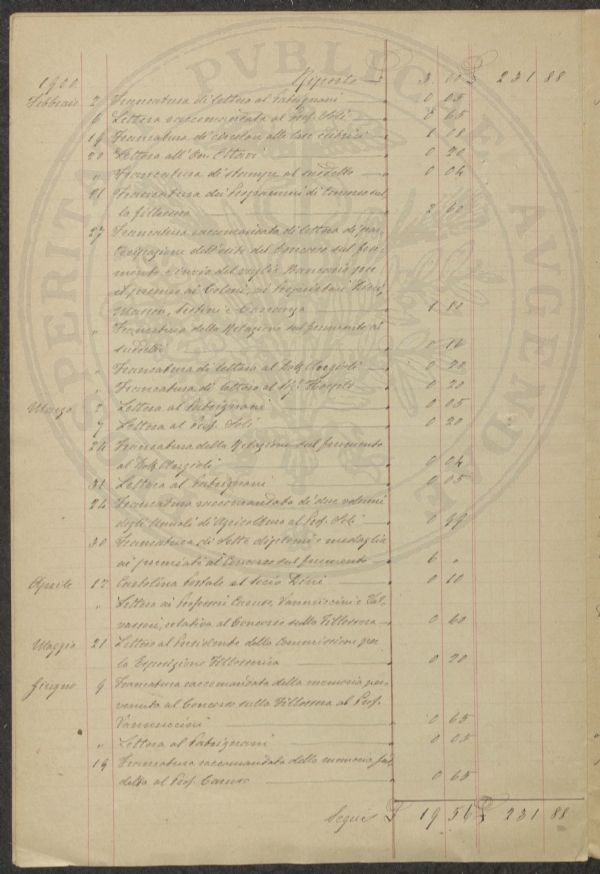 1900. Riporto £ 3 00 £ 231 88
Febbraio 2 Francatura di lettera al Patrignani 0 05
6 Lettera raccomandata al Prof. Poli 0 65
19 Francatura di circolari alle case 1 08
20 Lettera all'On. Ottavi 0 20
„ Francatura di stampe al suddetto 0 04
21 Francatura dei Programmi di Concorso sul
la fillossera 2 60
27 Francatura raccomandata di lettera di par-
tecipazione dell'esito del Concorso sul fru-
mento e invio del vaglia Bancario per
il premio ai Coloni, ai Proprietari
e 1 80
„ Francatura della Relazione sul frumento ai
suddetti 0
„ Francatura di lettera al Dott. 0 20
„ Francatura di lettera al 0 20
Marzo 2 Lettera al Patrignani 0 05
7 Lettera al Prof. Poli 0 20
24 Francatura della Relazione sul frumento
al Dott. 0 04
31 Lettera al Patrignani 0 05
24 Francatura raccomandata di due volumi
degli Annali di Agricoltura al Prof. Poli 0 49
30 Francatura di sette diplomi e medaglie
ai premiati al Concorso sul frumento 6 „
Aprile 12 Cartolina Postale al socio Dini 0 10
„ Lettera ai Professori Caruso, Vannuccini e Val-
vassori, relativa al Concorso sulla Fillossera 0 60
Maggio 21 Lettera al Presidente della Commissione per
la Esposizione Fillosserica 0 20
Giugno 9 Francatura raccomandata della memoria per-
venuta al Concorso sulla Fillossera al Prof.
Vannuccini 0 65
„ Lettera al Patrignani 0 05
19 Francatura raccomandata della memoria sud
detta al Prof. Caruso 0 65
Segue £ 19 56 £ 231 88
PROSPERITATI PVBLICAE AVGENDAE